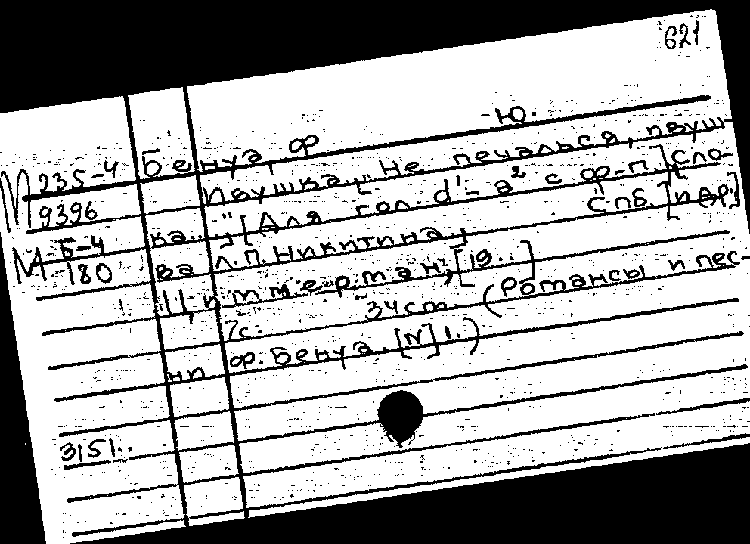 621
-Ю.
М 235-4 Бенуа, Ф
9396 Пвушка. „Не печалься, пвуш-
ка..." [Для гол. d'-a² с ф-п.] Сло-
М Б-4 ва Л.П. Никитина. Спб. [и др.]
180 Циммерман, [19..]
7с. 34cm. (Романсы и пес-
ни Ф. Бенуа. [N] 1.)
3151..